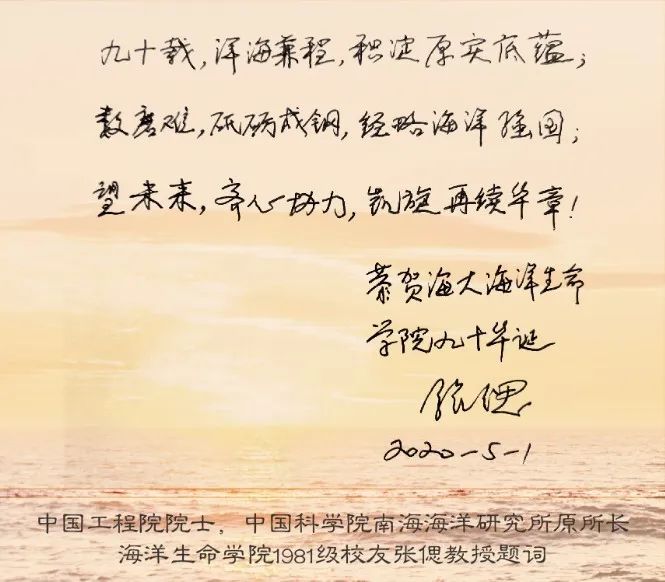 九十载，洋海兼程，积淀厚实底蕴；
数磨难，砥砺成钢，经略海洋强国；
望未来，齐心协力，凯旋再续华章！
恭贺海大海洋生命
学院九十华诞
张偲
2020-5-1
中国工程院院士，中国科学院南海海洋研究所原所长
海洋生命学院1981级校友张偲教授题词